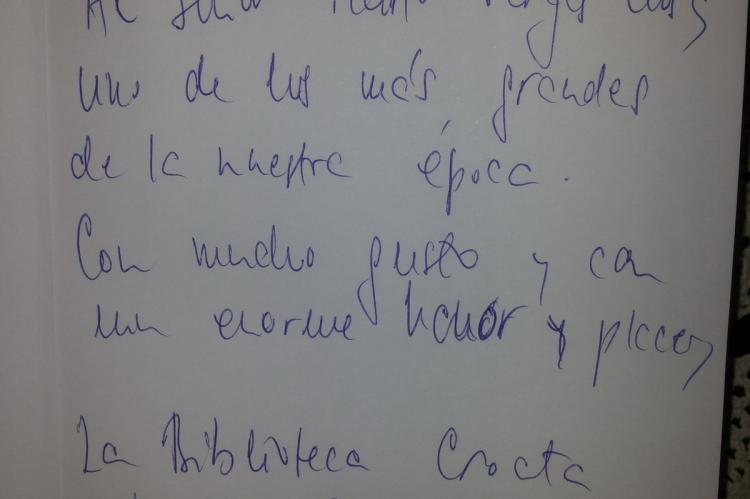 Al señor Mario Vargas Llosa,
uno de los más grandes
de la nuestra época.
Con mucho gusto y con
un enorme honor y placer,
La Biblioteca Croata